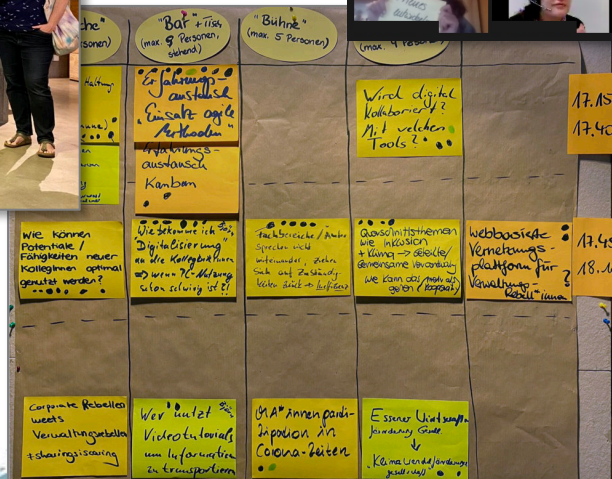 che"
sonen)
"Bar" + Tisch
(max. 8 Personen,
stehend)
"Bühne"
(max. 5 Personen)
Haltung
Erfahrungs-
austausch
"Einsatz agile
Methoden"
Erfahrungs-
austausch
Kanban
Wird digital
kollaboriert?
Mit welchen
Tools?
17.15
17.40
Wie können
Potentiale /
Fähigkeiten neuer
KollegInnen optimal
genutzt werden?
Wie bekomme ich
"Digitalisierung"
an die KollegInnen
=> wenn PC-Nutzung
schon schwierig ist?!
Fachbereiche / Ämter
sprechen nicht
miteinander, ziehen
sich auf Zuständig-
keiten zurück
Querschnittsthemen
wie Inklusion
+ Klima → geteilte/
gemeinsame Verantwortung
wie kann das
gehen
Webbasierte
Vernetzungs-
plattform für
Verwaltungs-
Rebell*innen?
17.45
18.1
Corporate Rebellen
meets
Verwaltungsrebellen
#sharingiscaring
Wer nutzt
Videotutorials
um Information
zu transportieren
MA*innenparti-
zipation in
Corona-Zeiten
Essener Wirtschafts-
förderung Gesell.
↓
"Klimawendeförderungs
gesellschaft"